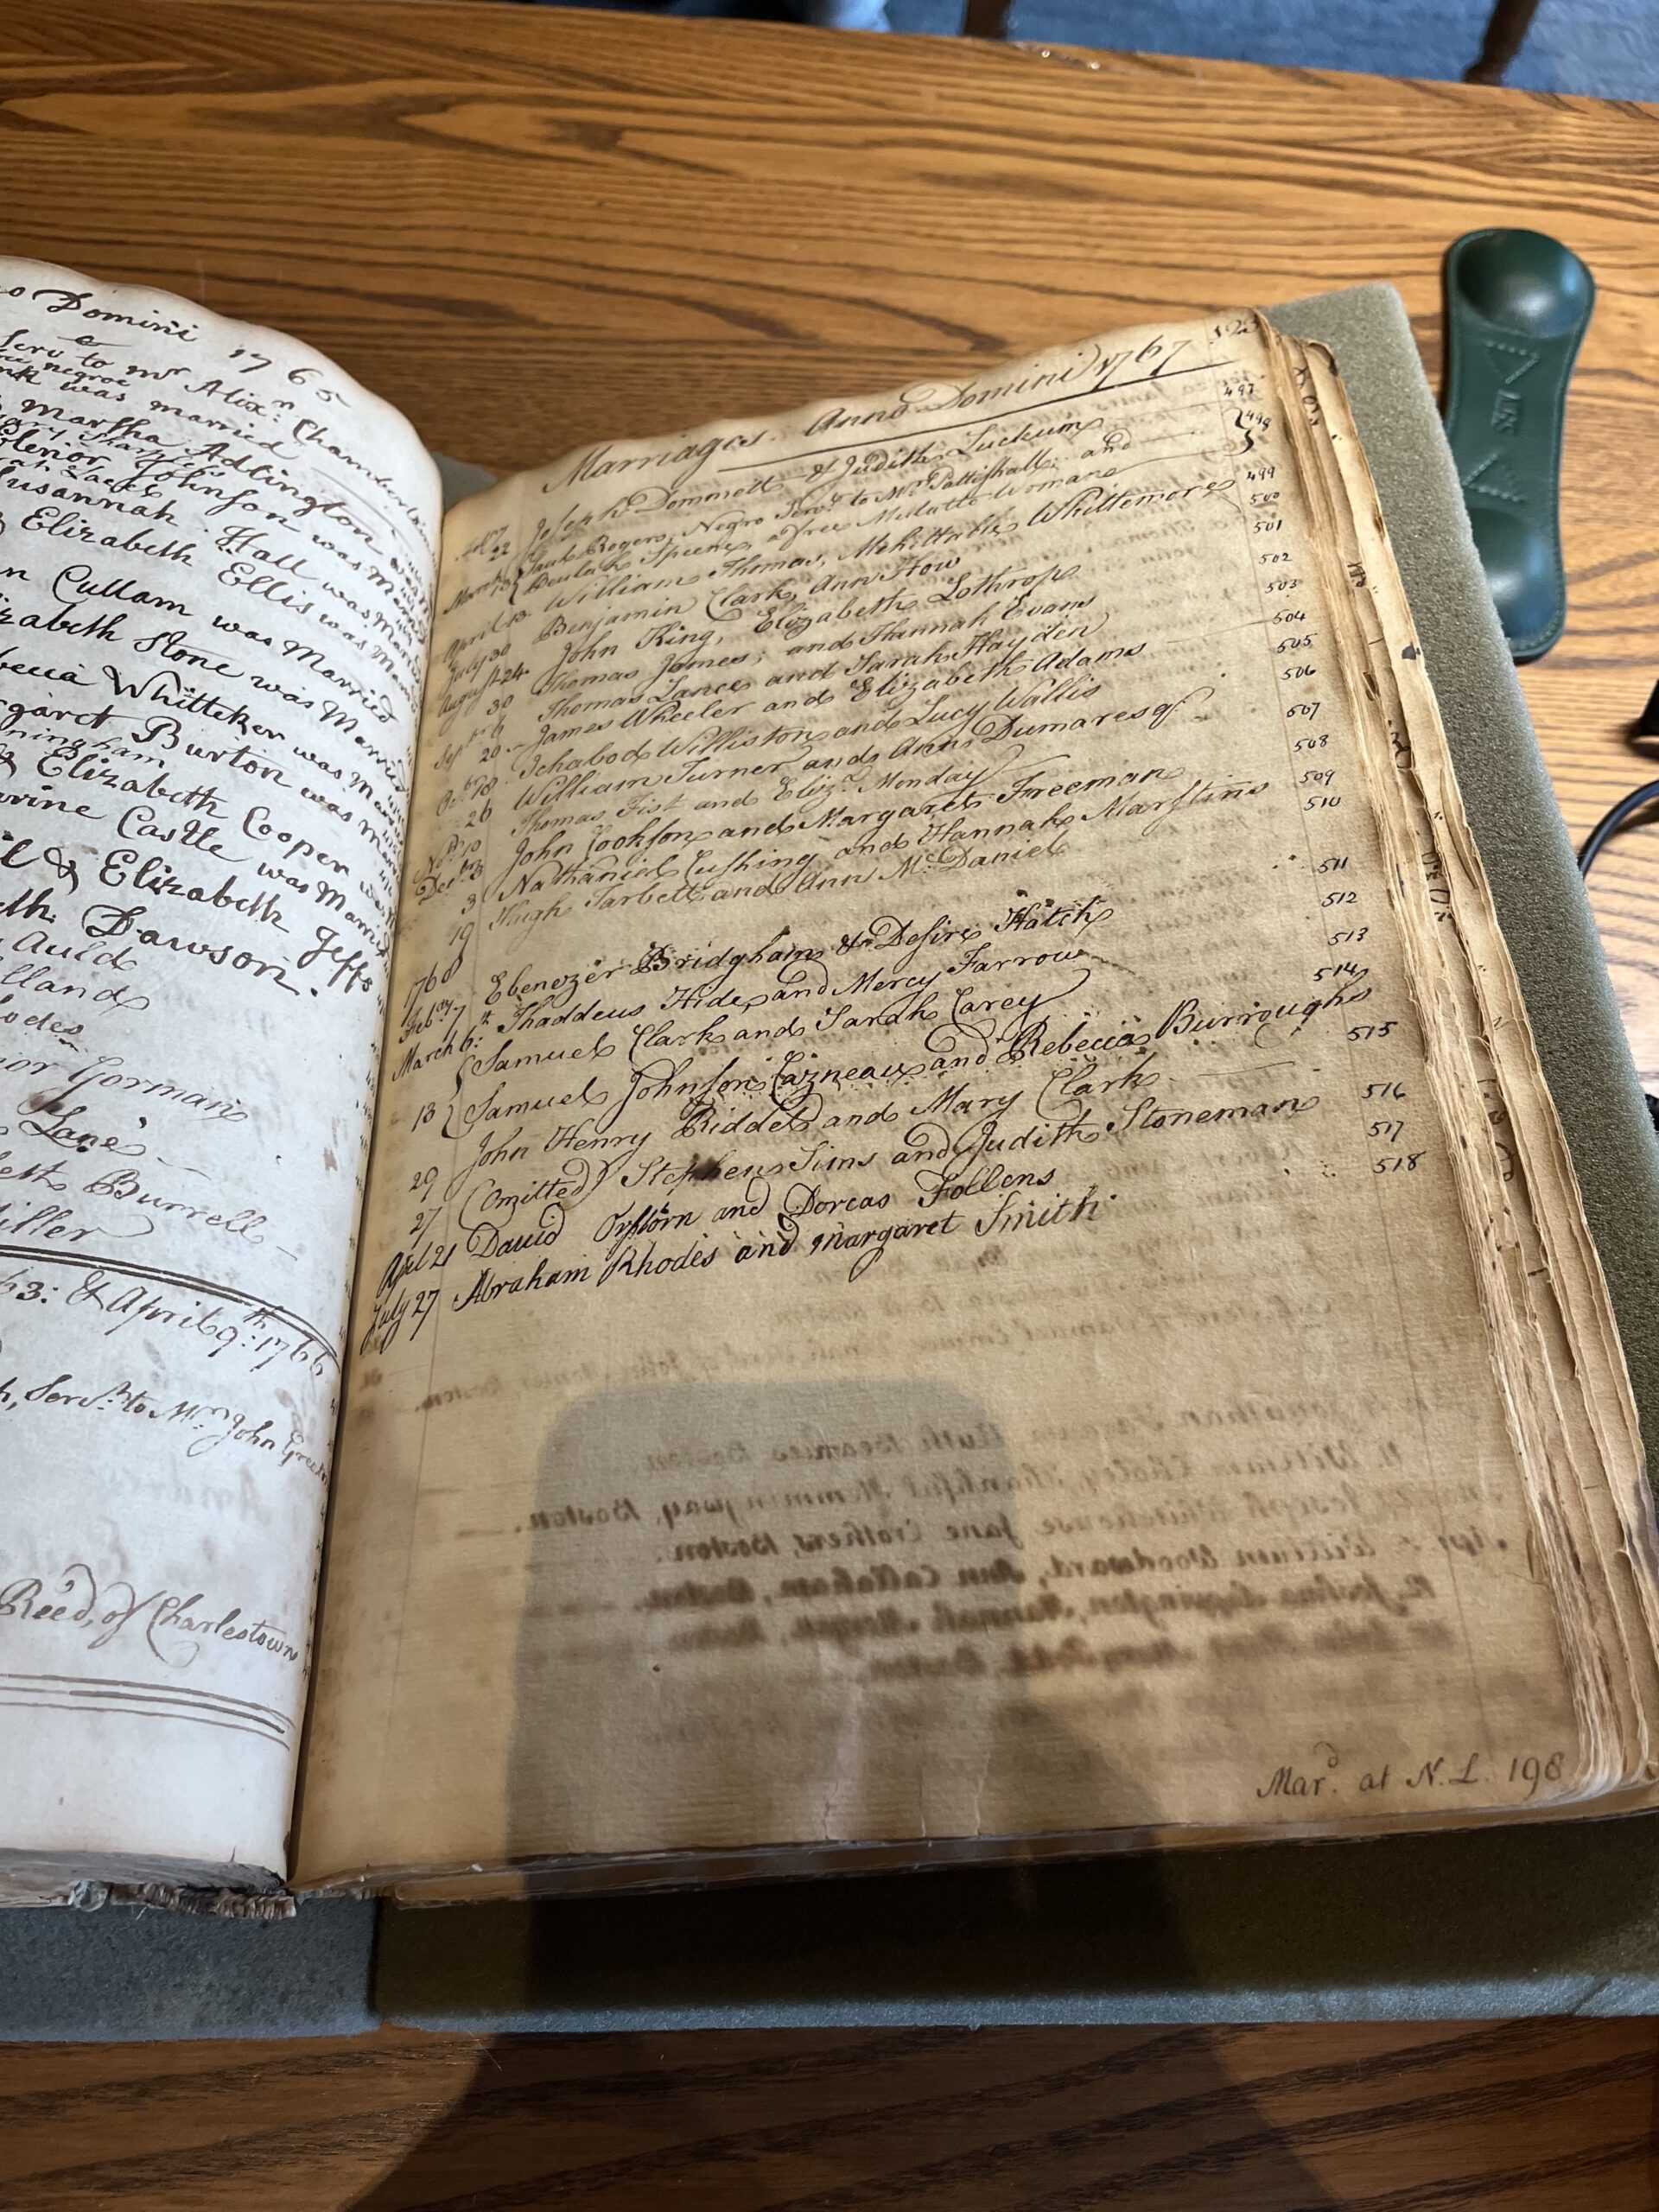 o Domini 1765
Serv to mr Alixn Chamberlain
negroe
was married
Martha Adlington was
Elenor Johnson was Married
Susannah Hall was Married
& Elizabeth Ellis was Married
n Cullam was Married
izabeth Stone was Married
becca Whitteker was Married
rgaret Burton was Married
ningham
& Elizabeth Cooper was
rine Castle was Married
l & Elizabeth Jeffs
eth Dawson.
Auld
lland
odes
nor Gorman
Lane
eth Burrell
iller
63: & April 9th: 1766
h, Servt. to Mr. John Green
Reed, of Charlestown
Marriages. Anno Domini 1767 123
22 Joseph Dommett & Judith Luckum 497
March 13 Rogers, Negro Servt. to Mr. Pattishall; and 498
Beulah Speene a free Mulatto Woman
April 13 William Thomas, Mehittable Whittemore 499
July 30 Benjamin Clark, Ann Stow 500
August 24 John King, Elizabeth Lothrop 501
30 Thomas James; and Hannah Evans 502
Septr 6 Thomas Lance and Sarah Hayden 503
20 James Wheeler and Elizabeth Adams 504
18 Ichabod Williston and Lucy Wallis 505
26 William Turner and Ann Dumaresq 506
10 Thomas Fist and Eliz. Monday 507
3 John Cookson and Margaret Freeman 508
3 Nathaniel Cushing and Hannah Marstins 509
19 Hugh Tarbett and Ann McDaniel 510
1768
Febry 7 Ebenezer Bridgham & Desire Hatch 511
March 6: Thaddeus Hide, and Mercy Farrow 512
Samuel Clark and Sarah Carey 513
13 Samuel Johnson Cazneau and Rebecca Burroughs 514
29 John Henry Riddel and Mary Clark 515
27 (omitted) Stephen Sims and Judith Stoneman 516
April 21 David and Dorcas Follens 517
July 27 Abraham Rhodes and Margaret Smith 518
Mard. at N. L. 198